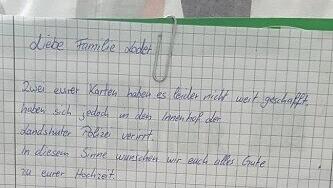 Liebe Familie Loder
Zwei eurer Karten haben es leider nicht weit geschafft,
haben sich jedoch in den Innenhof der
Landshuter Polizei verirrt.
In diesem Sinne wünschen wir euch alles Gute
zu eurer Hochzeit.